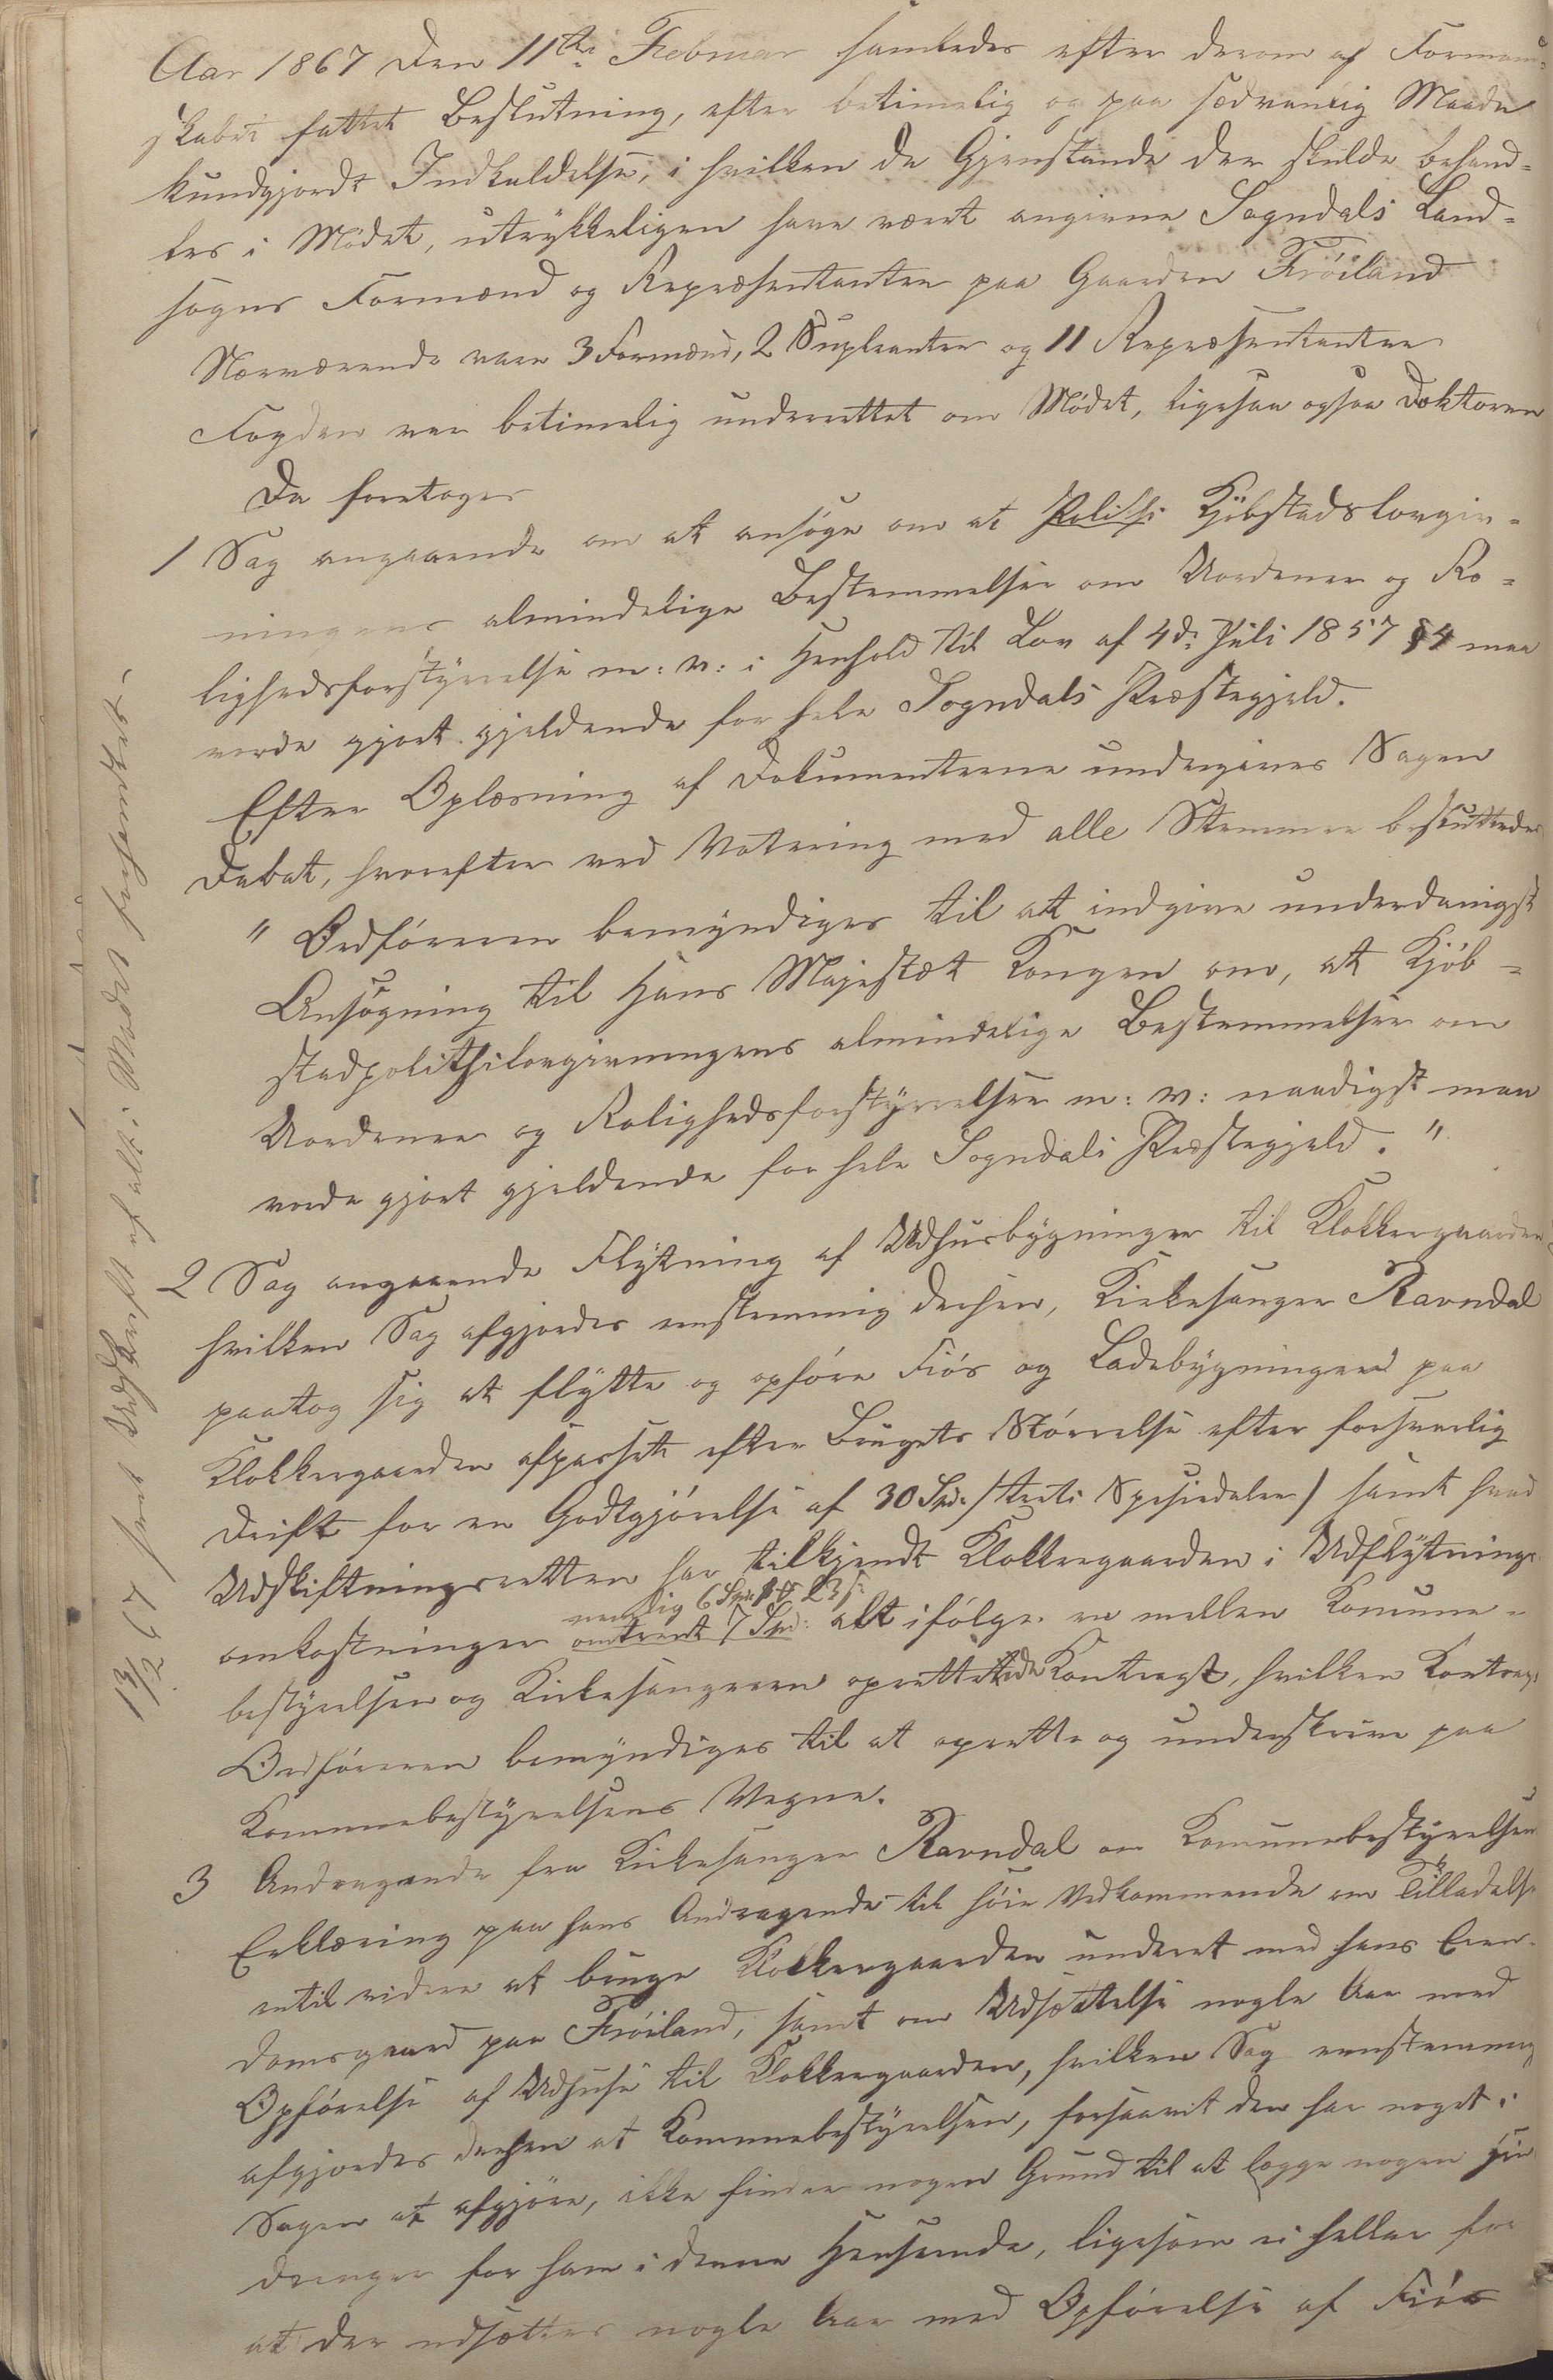 Aar 1867 den 11te Februar samledes efter derom af Formand-
skabet fattet Beslutning, efter betimelig og paa sædvanlig Maade
kundgjordt Indkaldelse, i hvilken de Gjenstande der skulde behand-
les i Mødet, utrykkeligen have været angivne Sogndals Land-
sogns Formænd og Repræsentanter paa Gaarden Frøiland
Nærværende vare 3 Formænd, 2 Supleanter og 11 Repræsentanter
Fogden var betimelig underrettet om Mødet, ligesaa ogsaa Doktoren
Da foretoges
1 Sag angaaende om at ansøge om at Politi Kjøbstadslovgiv-
ningens almindelige Bestemmelser om Uordener og Ro-
lighedsforstyrrelse m: v: i Henhold til Lov af 4de Juli 1857 § 4 maa
vorde gjort gjeldende for hele Sogndals Præstegjeld.
Efter Oplæsning af Dokumenterne undergives Sagen
Debat, hvorefter ved Votering med alle Stemmer besluttedes
" Ordføreren bemyndiges til at indgive underdanigst
Ansøgning til Hans Majestæt Kongen om, at Kjøb-
stadpolitilovgivningens almindelige Bestemmelser om
Uordener og Rolighedsforstyrrelser m: v: naadigst maa
vorde gjort gjeldende for hele Sogndals Præstegjeld. "
2 Sag angaaende Flytning af Udhusbygninger til Klokkergaarden
hvilken Sag afgjordes eenstemmig derhen, Kirkesanger Ravndal
paatog sig at flytte og opføre Fiøs og Ladebygninger paa
Klokkergaarden afpasset efter Brugets Størrelse efter forsvarlig
Drift for en Godtgjørelse af 30 Spd. (treti Spesiedaler) samt hvad
Udskiftningsretten har tilkjendt Klokkergaarden i Udflytnings-
nemlig 6 Spd 23 s
omkostninger omtrent 7 Spd: alt ifølge en mellem Komune-
bestyrelsen og Kirkesangeren oprettende Kontragt, hvilken Kontragt
Ordføreren bemyndiges til at oprette og underskrive paa
Kommunebestyrelsens Vegne.
3 Andragende fra Kirkesanger Ravndal om Komunebestyrelsens
Erklæring paa hans Andragende til høie Vedkommende om Tilladelse
intil videre at bruge Klokkergaarden underet med hans Eien-
domsgaard paa Frøiland, samt om Udsættelse nogle Aar med
Opførelse af Udhuse til Klokkergaarden, hvilken Sag eenstemmig
afgjordes derhen at Kommunebestyrelsen, forsaavit den har noget i
Sagen at afgjøre, ikke finder nogen Grund til at legge nogen Hin-
dringer for ham i denne Henseende, ligesom ei heller for
at der udsættes nogle Aar med Opførelse af Fiøs
13/2 67 sent Udskrift af alt i Mødet forhandlet.